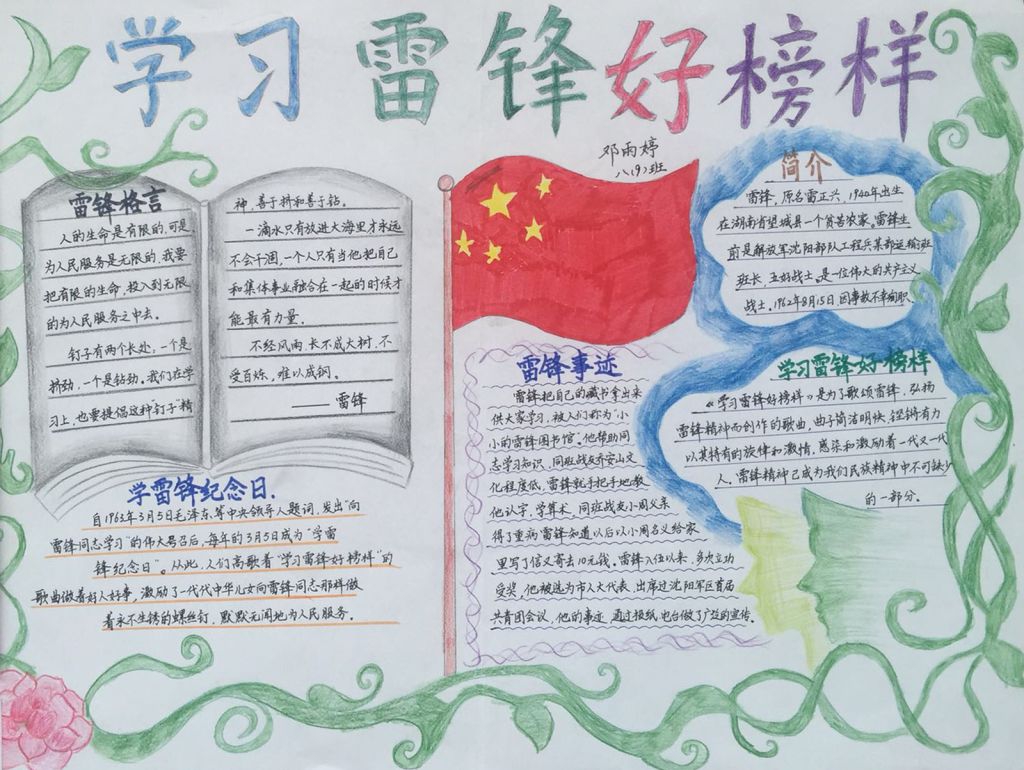 学习雷锋好榜样
邓雨婷
八(9)班
雷锋格言
人的生命是有限的,可是
为人民服务是无限的,我要
把有限的生命,投入到无限
的为人民服务之中去。
钉子有两个长处,一个是
挤劲,一个是钻劲,我们在学
习上,也要提倡这种“钉子”精
神,善于挤和善于钻。
一滴水只有放进大海里才永远
不会干涸,一个人只有当他把自己
和集体事业融合在一起的时候才
能最有力量.
不经风雨,长不成大树,不
受百炼,难以成钢。
——雷锋
简介
雷锋,原名雷正兴,1940年出生
在湖南省望城县一个贫苦农家。雷锋生
前是解放军沈阳部队工程兵某部运输班
班长,五好战士,是一位伟大的共产主义
战士。1962年8月15日,因事故不幸殉职。
学习雷锋好榜样
《学习雷锋好榜样》是为了歌颂雷锋,弘扬
雷锋精神而创作的歌曲,曲子简洁明快,铿锵有力
以其特有的旋律和激情,感染和激励着一代又一代
人,雷锋精神已成为我们民族精神中不可缺少
的一部分。
雷锋事迹
雷锋把自己的藏书拿出来
供大家学习,被人们称为“小
小的雷锋图书馆”。他帮助同
志学习知识,同班战友乔安山文
化程度低,雷锋就手把手地教
他认字,学算术,同班战友小周父亲
得了重病雷锋知道以后以小周名义给家
里写了信又寄去10元钱。雷锋入伍以来,多次立功
受奖,他被选为市人大代表,出席过沈阳军区首届
共青团会议,他的事迹,通过报纸,电台做了广泛的宣传。
学雷锋纪念日.
自1963年3月5日毛泽东等中央领导人题词,发出“向
雷锋同志学习”的伟大号召后,每年的3月5日成为“学雷
锋纪念日”。从此,人们高歌着“学习雷锋好榜样”的
歌曲做着好人好事,激励了一代代中华儿女向雷锋同志那样做
着永不生锈的螺丝钉,默默无闻地为人民服务。